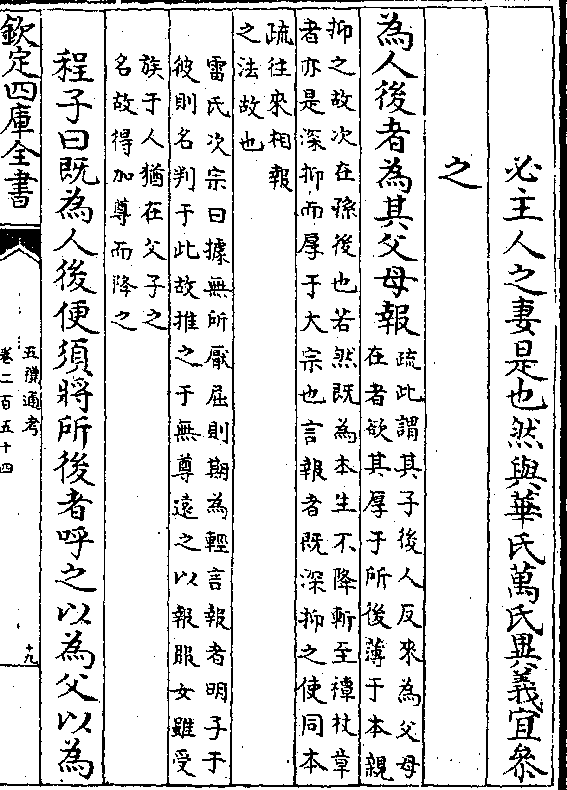 必主人之妻是也然與華氏萬氏異義宜叅
之
為人後者為其父母報
疏此謂其子後人反來為父母
在者欲其厚于所後薄于本親
抑之故次在孫後也若然既為本生不降斬至禫杖章
者亦是深抑而厚于大宗也言報者既深抑之使同本
疏往來相報
之法故也
雷氏次宗曰據無所厭屈則期為輕言報者明子于
彼則名判于此故推之于無尊遠之以報服女雖受
族于人猶在父子之
名故得加尊而降之
程子曰既為人後便須將所後者呼之以為父以為
欽定四庫全書
五禮通考
卷二百五十四
十九